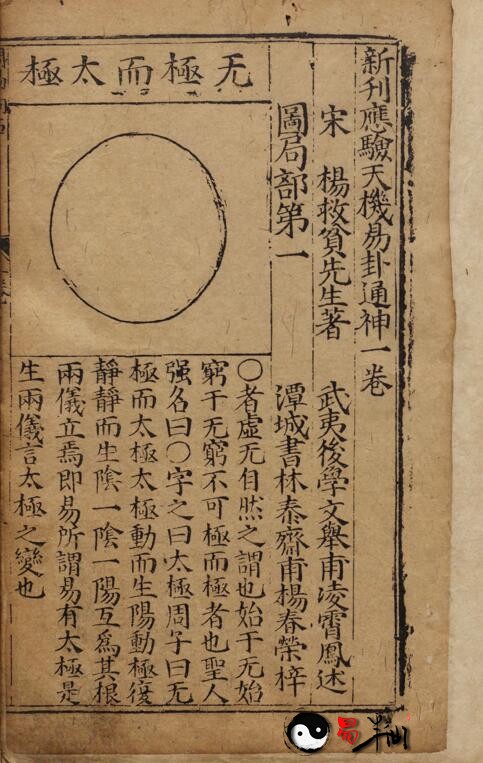 新刋應驗天機易卦通神一卷
宋 楊救貧先生著 武夷後學文舉甫凌霄鳳述
圖局部第一 潭城書林泰齋甫楊春榮梓
无極而太極
〇者虛无自然之謂也始于无始
窮于无窮不可極而極者也聖人
强名曰〇字之曰太極周子曰无
極而太極太極動而生陽動極復
靜靜而生陰一陰一陽互爲其根
兩儀立焉即易所謂易有太極是
生兩儀言太極之變也
易半仙